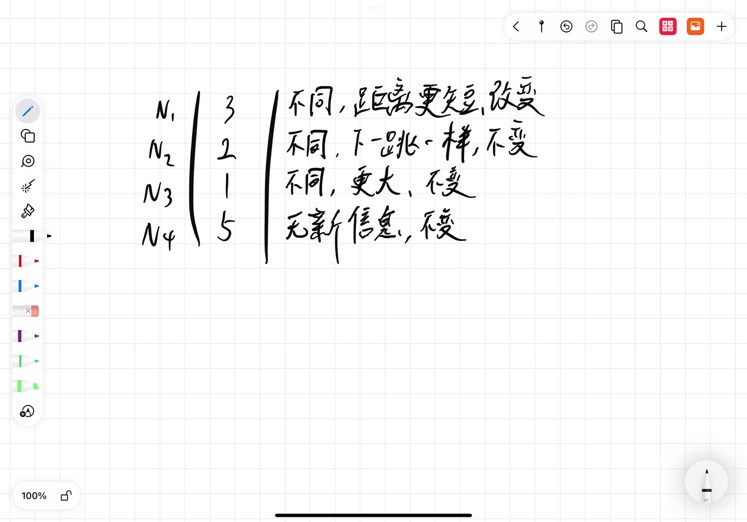 N1 3 不同，距离更短、改变
N2 2 不同，下一跳一样，不变
N3 1 不同，更大、不变
N4 5 无新信息，不变
100%